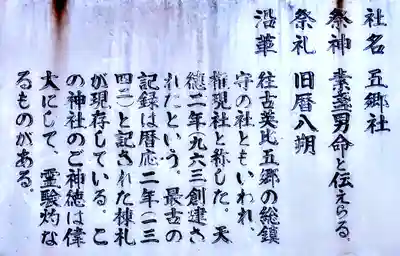 社名 五郷社
祭神 素盞男命と伝えらる。
祭礼 旧暦八朔
沿革
往古英比五郷の総鎮
守の社ともいわれ、
権現社と称した。天
徳二年(九六三創建さ
れたという。最古の
記録は暦応二年(一三
四二)と記された棟札
が現存している。こ
の神社のご神徳は偉
大にして、霊験灼な
るものがある。